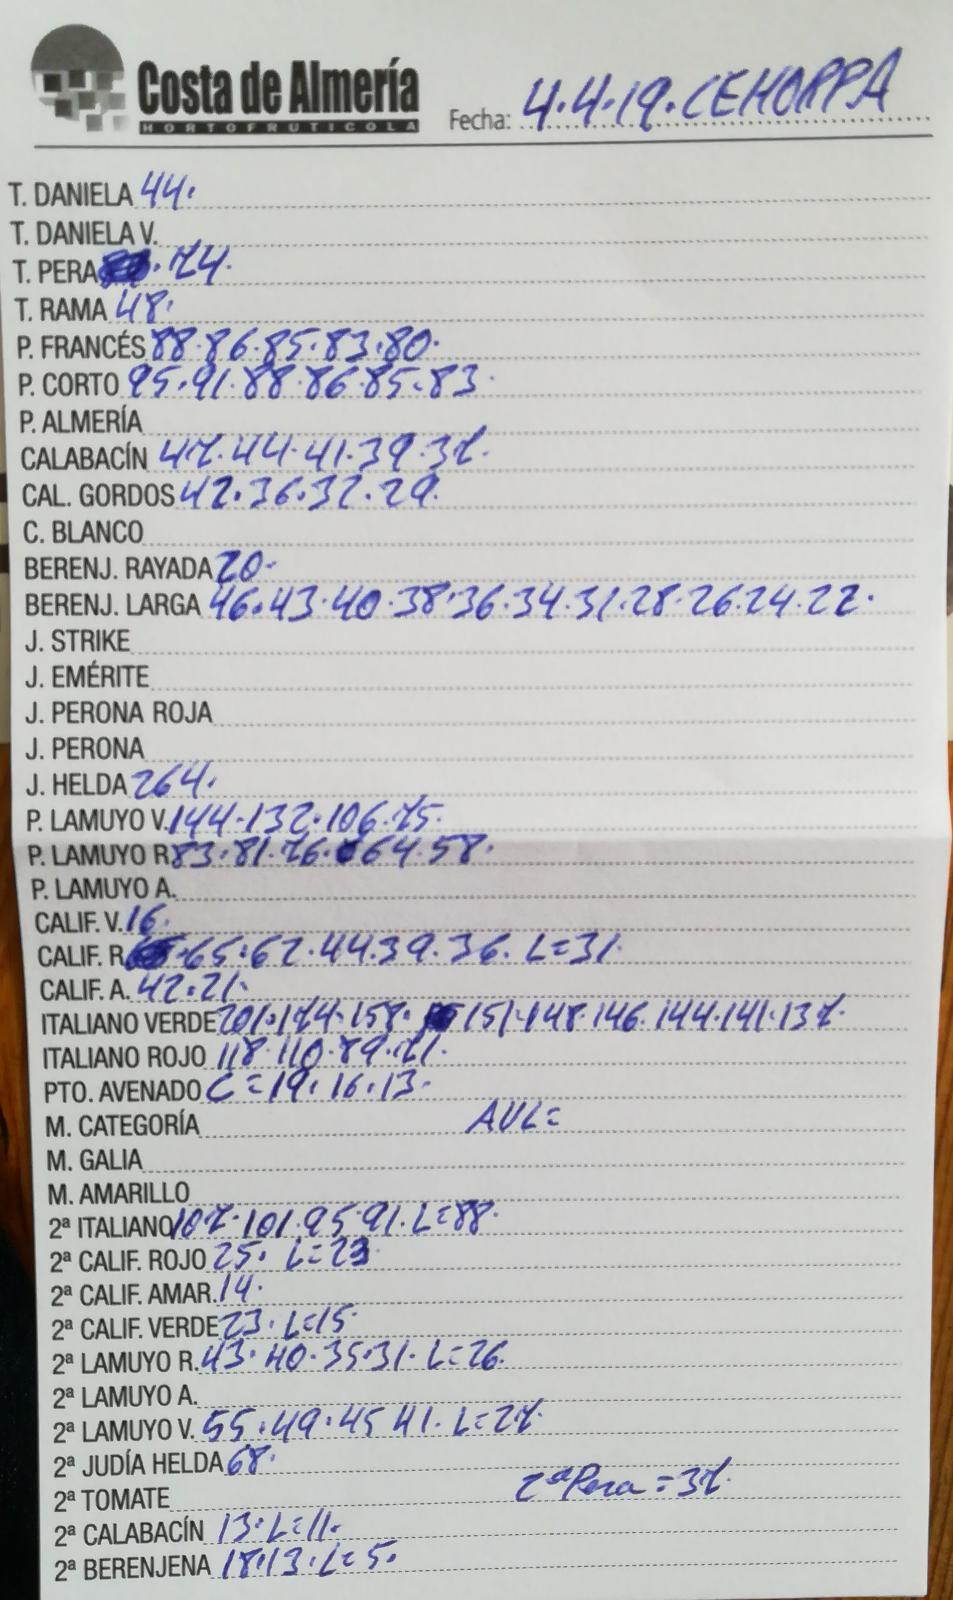 Costa de Almería
HORTOFRUTICOLA
Fecha: 4.4.19. CEHORPA
T. DANIELA 44.
T. DANIELA V.
T. PERA . 74.
T. RAMA 48.
P. FRANCÉS 88.86.85.83.80.
P. CORTO 95.91.88.86.85.83.
P. ALMERÍA
CALABACÍN 47.44.41.39.37.
CAL. GORDOS 42.36.32.29.
C. BLANCO
BERENJ. RAYADA 20.
BERENJ. LARGA 46.43.40.38.36.34.31.28.26.24.22.
J. STRIKE
J. EMÉRITE
J. PERONA ROJA
J. PERONA
J. HELDA 264.
P. LAMUYO V. 144.132.106.75.
P. LAMUYO R 83.81.76. 64.58.
P. LAMUYO A.
CALIF. V. 16.
CALIF. R .65.62.44.39.36. L=31.
CALIF. A. 42.21.
ITALIANO VERDE 201.174.158. 151.148.146.144.141.137.
ITALIANO ROJO 118.110.89.71.
PTO. AVENADO C=19.16.13.
M. CATEGORÍA AVL=
M. GALIA
M. AMARILLO
2ª ITALIANO 107.101.95.91. L=88.
2ª CALIF. ROJO 25. L=23
2ª CALIF. AMAR. 14.
2ª CALIF. VERDE 23. L=15.
2ª LAMUYO R. 43.40.35.31. L=26.
2ª LAMUYO A.
2ª LAMUYO V. 55.49.45 41. L=27.
2ª JUDÍA HELDA 68.
2ª TOMATE 2ª Pera = 37.
2ª CALABACÍN 13. L=11.
2ª BERENJENA 18.13. L=5.